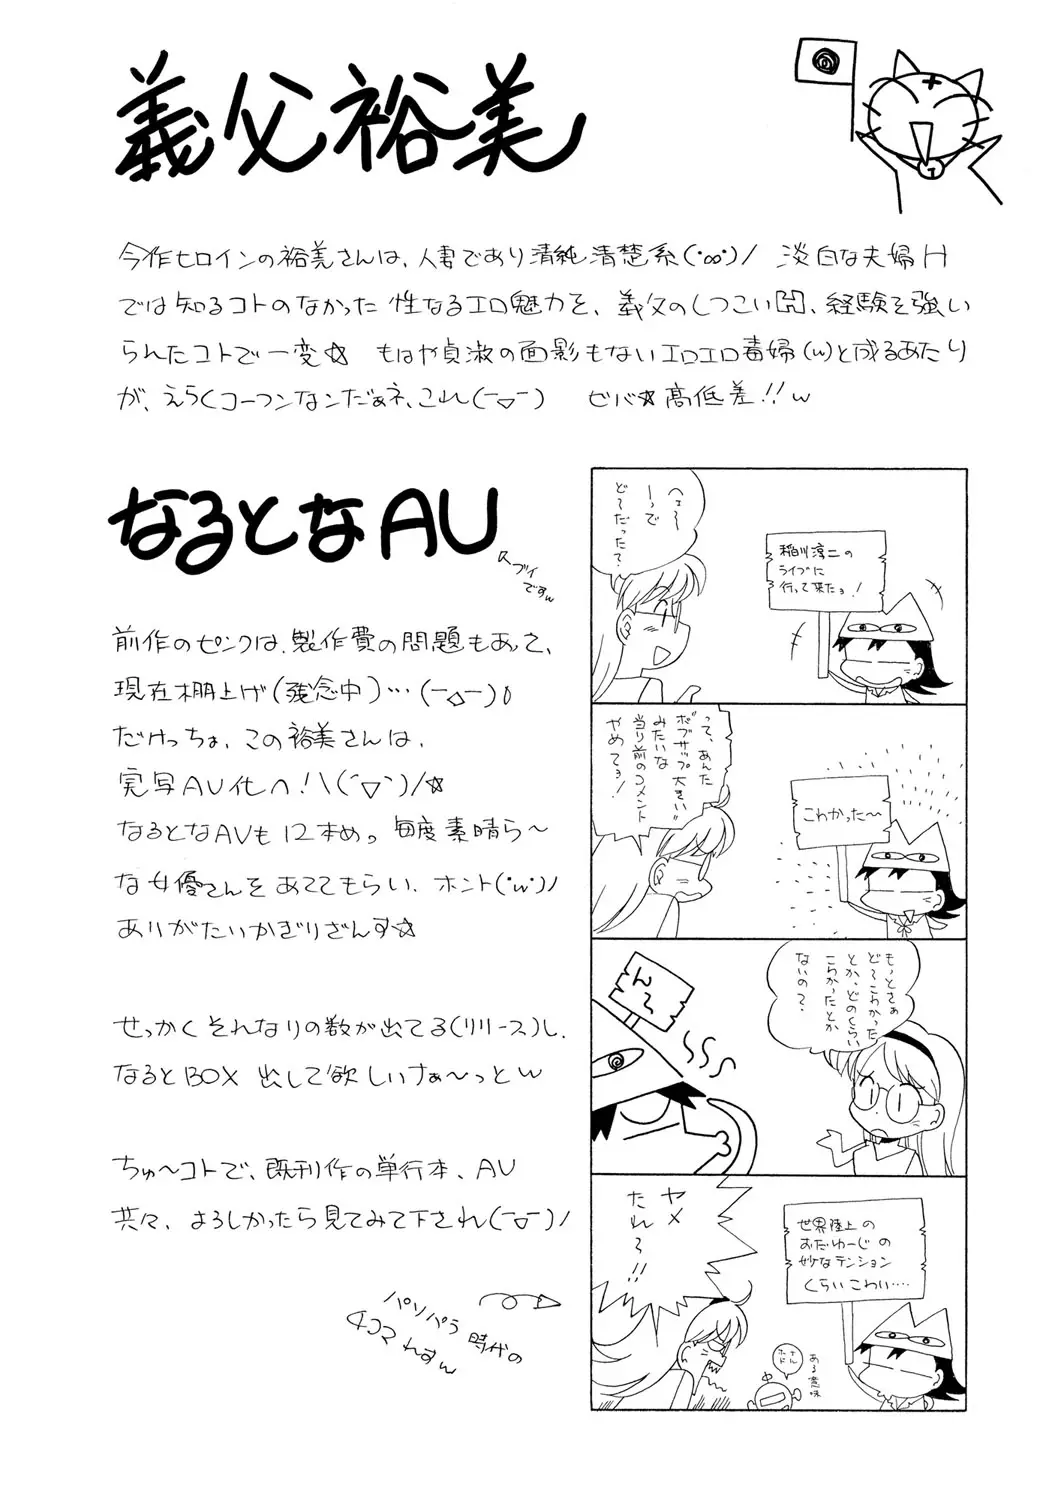 義父裕美
今作ヒロインの裕美さんは、人妻であり清純清楚系(・∞・)/ 淡白な夫婦H
では知るコトのなかった 性なるエロ魅力を、義父のしつこい閧、経験を強い
られたコトで一変☆ もはや貞淑の面影もないエロエロ毒婦(w)と成るあたり
が、えらくコーフンなンだぁネ、これ(ーㅁー) ビバ☆高低差!!w
なるとなAV
スブイ
ですw
前作のピンクは、製作費の問題もあって、
現在棚上げ(残念中)…(ーㅁー)0
だけっちょ、この裕美さんは、
実写AV化へ!\(▽)/☆
なるとなAVも12本めっ 毎度素晴ら〜
な女優さんをあててもらい、ホント('w')ノ
ありがたいかぎりざんす☆
せっかくそれなりの数が出てる(リリース)し、
なるとBOX 出して欲しいすぁ〜っとw
ちゅ〜コトで、既刊作の単行本、AV
共々、よろしかったら見てみて下され(ーㅁー)ノ
パソパラ時代の
4コマれすw
へぇ〜
ーっで
ど〜だった?
稲川淳二の
ライブに
行って来たョ!
って、あんた
ボブサップ大きい"
みたいな
当り前のコメント
やめてョ!
こわかった〜
も〜とさぁ
ど〜こわかった
とか、どのくらい
こわかったとか
ないの?
ん〜
ヤメ
たれ〜!!
世界陸上の
おだゆーじの
妙なテンション
くらいこわい‥‥
ナル
ホド
ある意味